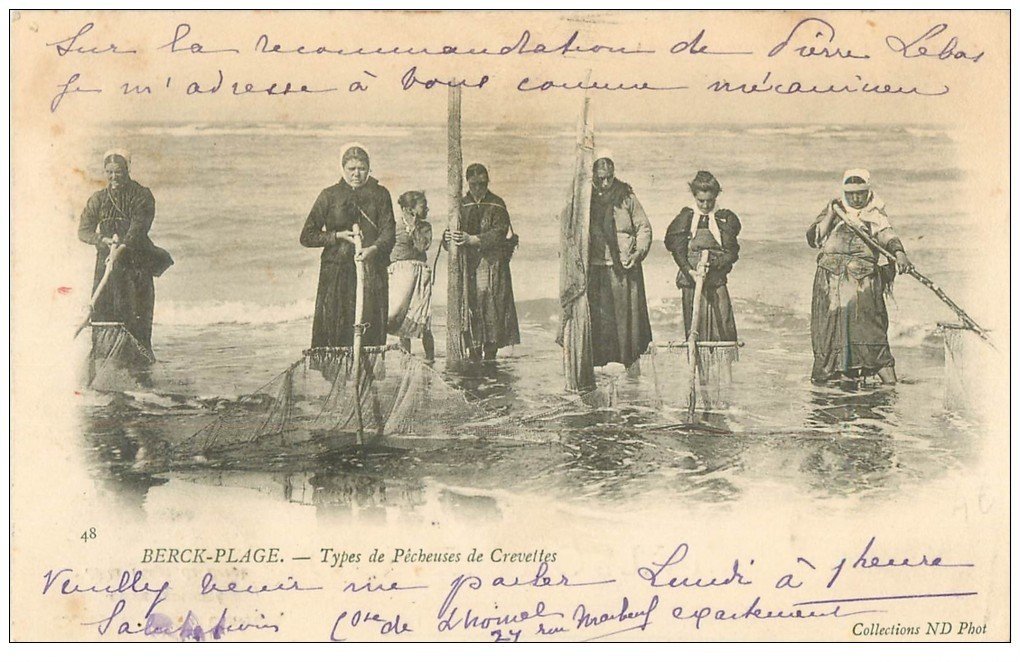 Sur la recommandation de Pierre Lebas
Je m'adresse à Vous comme mécanicien
48
BERCK-PLAGE. — Types de Pêcheuses de Crevettes
Veuillez venir me parler Lundi à 1 heure
Salutations Ctsse de L'homel exactement
27 rue Marbeuf
Collections ND Phot